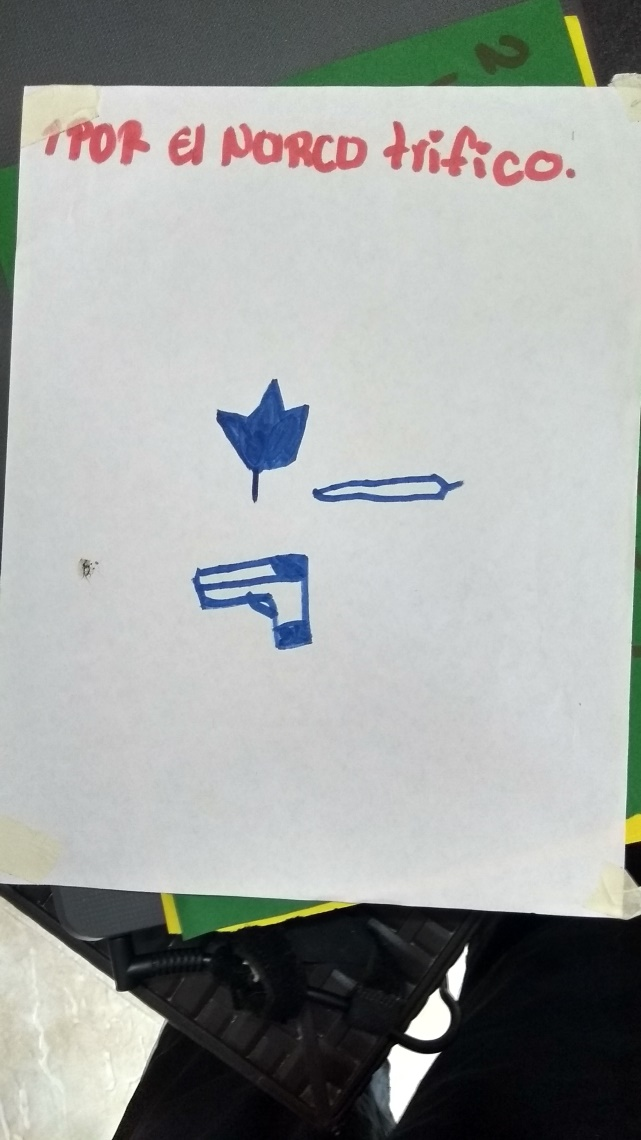 1 POR El NORCO trifico.
2